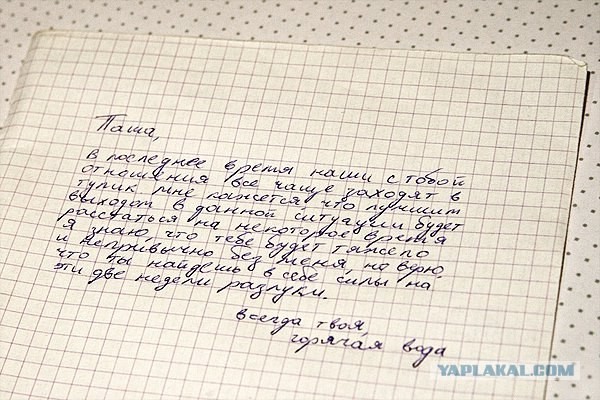 Паша,
в последнее время наши с тобой
отношения все чаще заходят в
тупик. мне кажется, что лучшим
выходом в данной ситуации будет
расстаться на некоторое время
я знаю, что тебе будет тяжело
и непривычно без меня, но верю,
что ты найдешь в себе силы на
эти две недели разлуки.
всегда твоя,
горячая вода
YAPLAKAL.COM